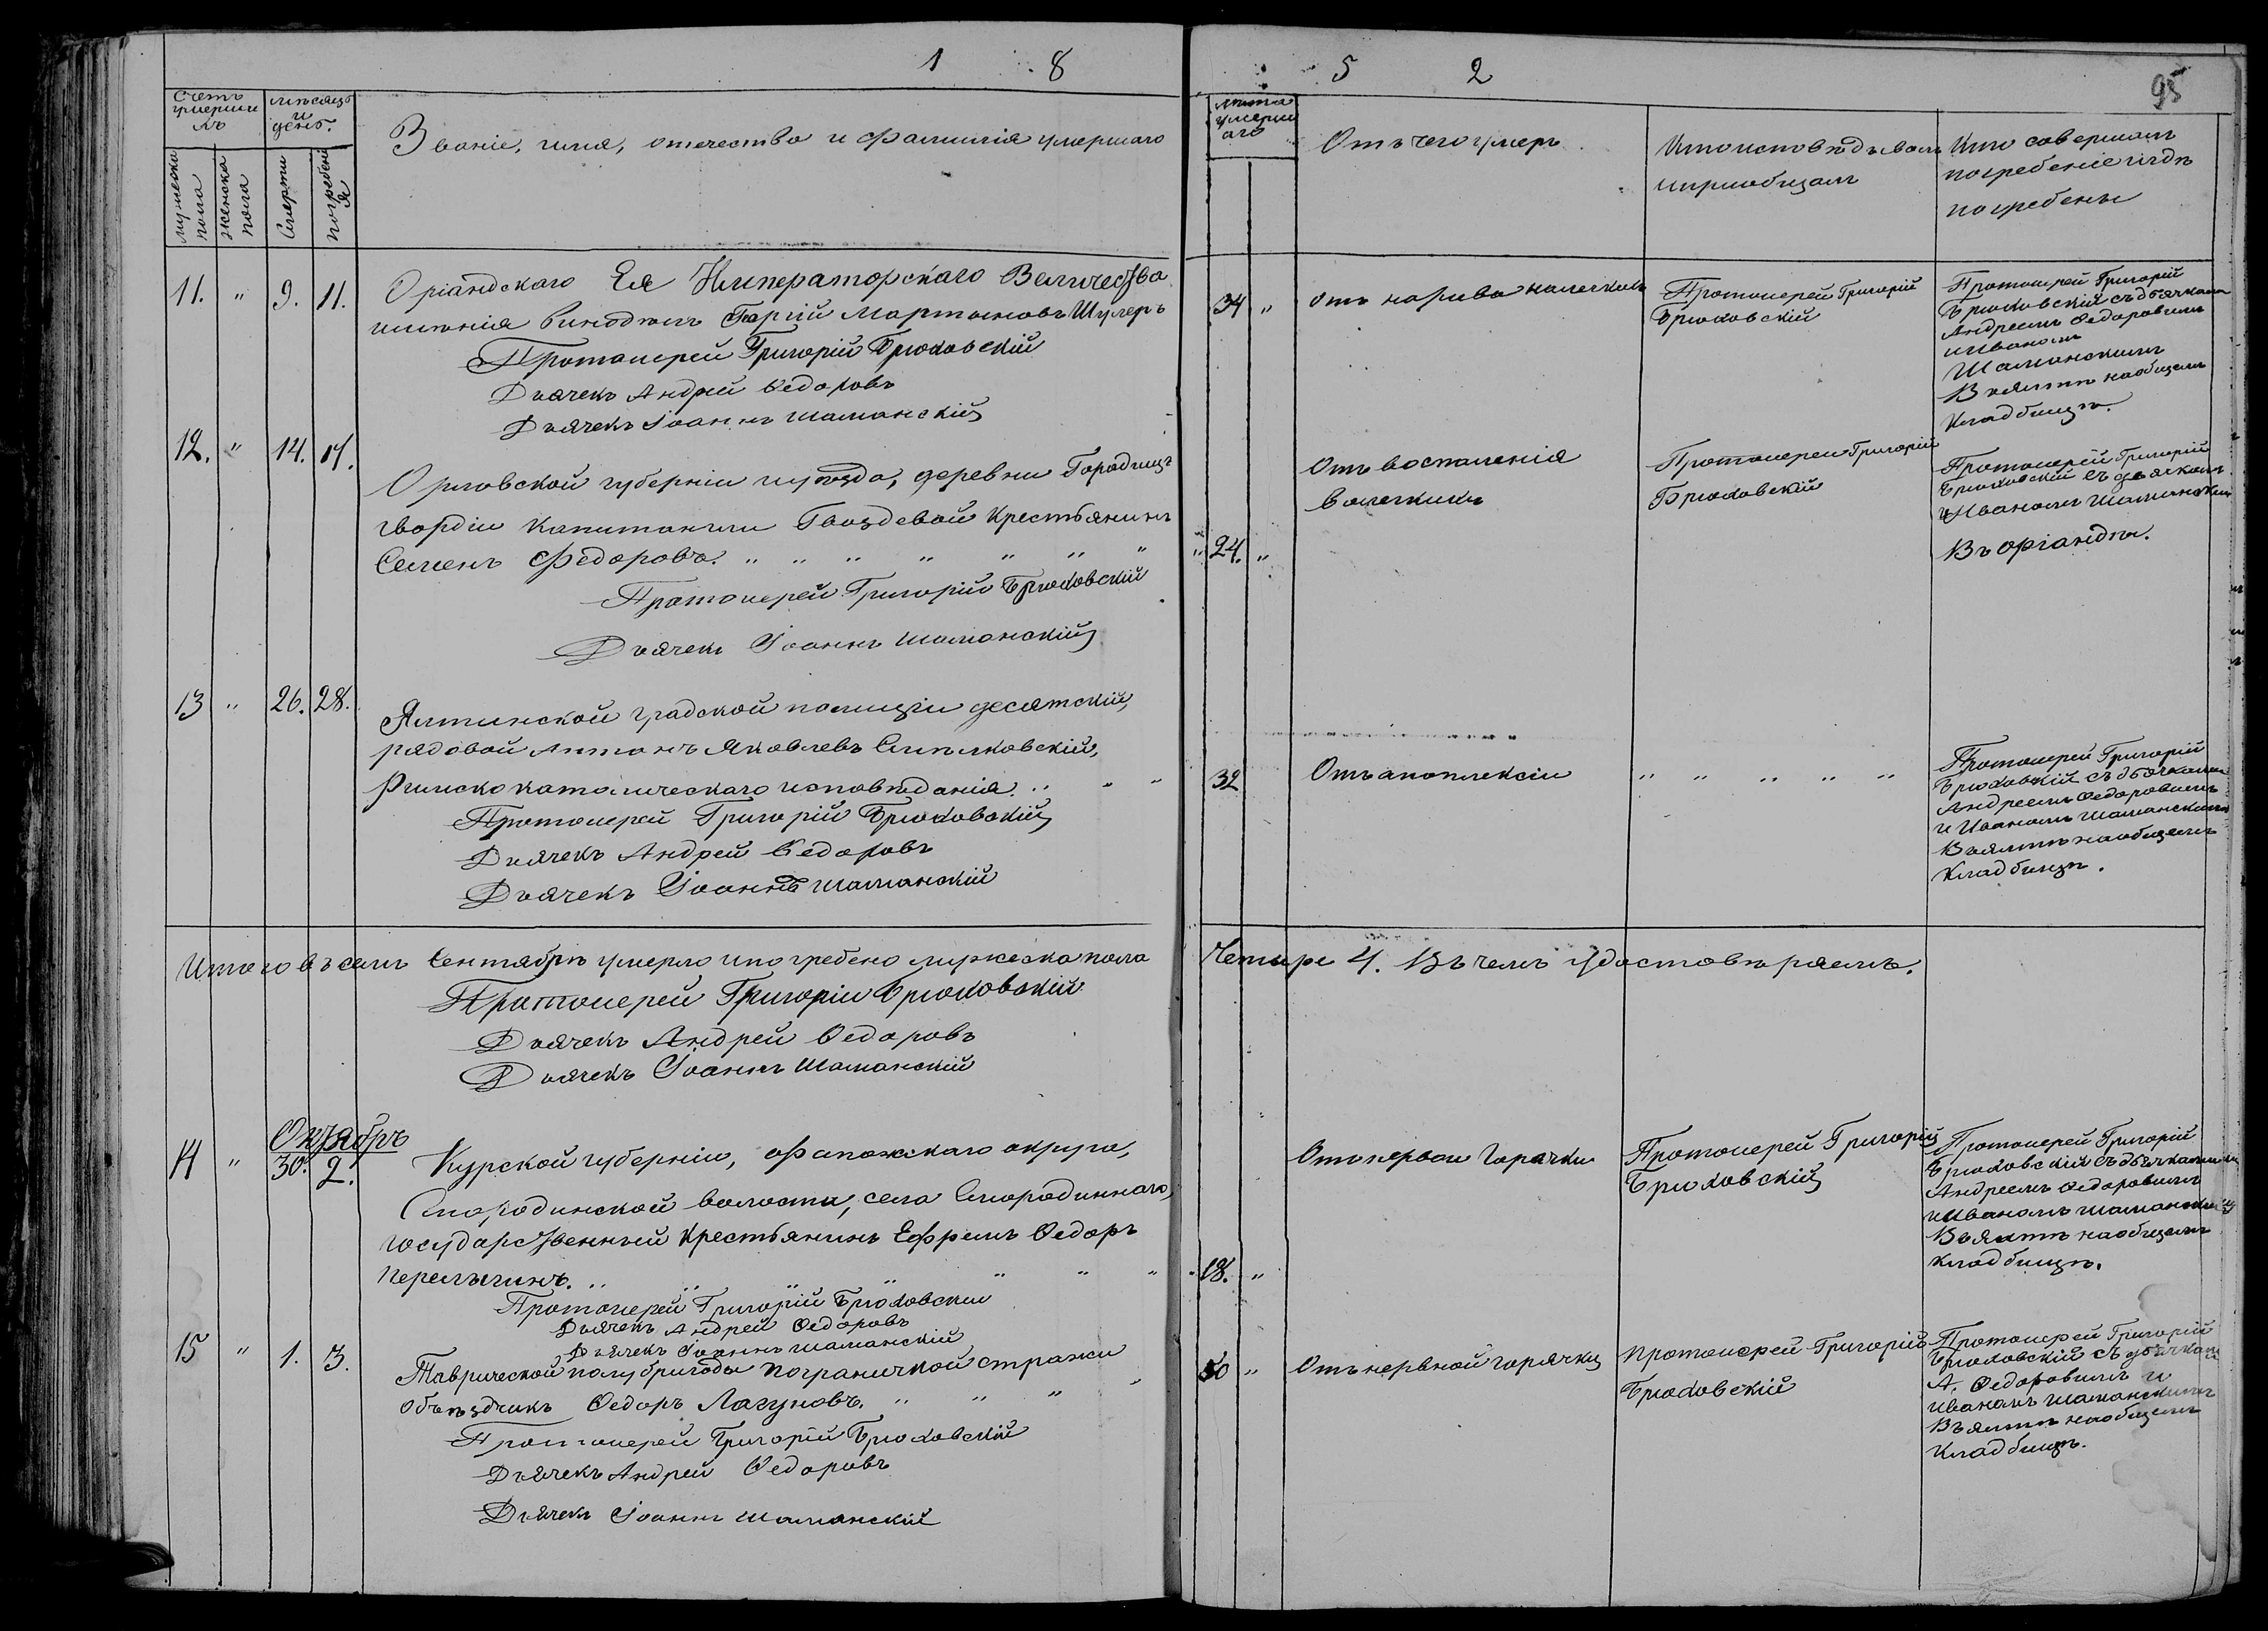 1 8
5 2
95
Счетъ умершихъ
мѣсяцъ и день.
мужеска пола
женска пола
Смерти
погребенія
Званіе, имя, отечество и фамилія умершаго
лѣта умершаго
Отъ чего умеръ
Кто исповѣдывалъ и приобщалъ
Кто совершалъ погребеніе и гдѣ погребены
11. " 9. 11.
Оріандскаго Ея Императорскаго Величества
имѣнія винодѣлъ Георгій Мартыновъ Шулеръ
Протоіерей Григорій Брюховскій
Дьячекъ Андрей Ѳедоровъ
Дьячекъ Іоаннъ Шаманскій
34 "
отъ нарива налегкихъ
Протоіерей Григорій
Брюховскій
Протоіерей Григорій
Брюховскій съ дьячками
Андреемъ Ѳедоровымъ
и Иваномъ
Шаманскимъ
Въ Ялтѣ на общемъ
кладбищѣ.
12. " 14. 17.
Орловской губерніи и уѣзда, деревни Городищ
гвардіи капитанши Гвоздевой крестьянинъ
Семенъ Федоровъ. " " " " " " "
Протоіерей Григорій Брюховскій
Дьячекъ Іоаннъ Шаманскій
" 24. "
Отъ воспаленія
въ легкихъ
Протоіерей Григорій
Брюховскій
Протоіерей Григорій
Брюховскій съ дьячкомъ
Иваномъ Шаманскимъ
Въ Оріандѣ.
13 " 26. 28.
Ялтинской градской полиціи десятскій,
рядовой Антонъ Яковлевъ
Римско католическаго исповѣданія. " " "
Протоіерей Григорій Брюховскій
Дьячекъ Андрей Ѳедоровъ
Дьячекъ Іоаннъ Шаманскій
32
Отъ апоплексіи
" " " " "
Протоіерей Григорій
Брюховскій съ дьячками
Андреемъ Ѳедоровымъ
и Иваномъ Шаманскимъ
Въ Ялтѣ на общемъ
кладбищѣ.
Итого въ семъ Сентябрѣ умерло и погребено мужеска пола
Четыре 4. Въ чемъ удостовѣряемъ.
Протоіерей Григорій Брюховскій
Дьячекъ Андрей Ѳедоровъ
Дьячекъ Іоаннъ Шаманскій
Октябрь
14 " 30. 2.
Курской губерніи, Фатежскаго округа,
Смородинской волости, села Смородиннаго,
государственный крестьянинъ Ефремъ Ѳедоръ
Перелыгинъ. " " " " " " "
Протоіерей Григорій Брюховскій
Дьячекъ Андрей Ѳедоровъ
Дьячекъ Іоаннъ Шаманскій
" 18. "
Отъ нервои горячки
Протоіерей Григорій
Брюховскій
Протоіерей Григорій
Брюховскій съ дьячками
Андреемъ Ѳедоровымъ
и Иваномъ Шаманскимъ
Въ Ялтѣ на общемъ
кладбищѣ.
15 " 1. 3.
Таврической полубригады пограничной стражи
объѣздчикъ Ѳедоръ Лагуновъ. " " " "
Протоіерей Григорій Брюховскій
Дьячекъ Андрей Ѳедоровъ
Дьячекъ Іоаннъ Шаманскій
50 "
Отъ нервной горячки
Протоіерей Григорій
Брюховскій
Протоіерей Григорій
Брюховскій съ дьячками
А. Ѳедоровымъ и
Иваномъ Шаманскимъ
Въ Ялтѣ на общемъ
кладбищѣ.